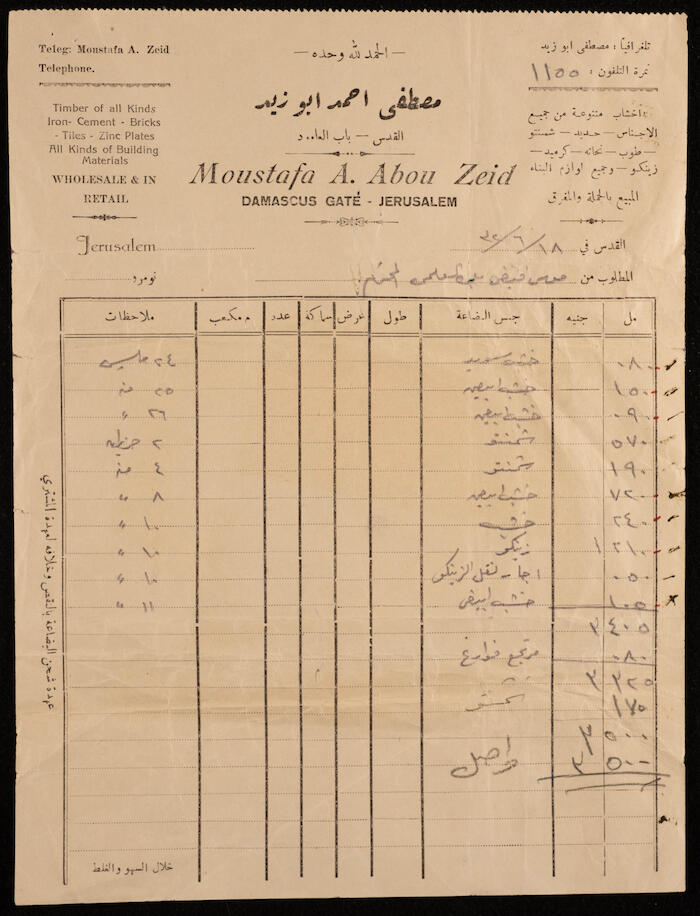 Teleg: Moustafa A. Zeid
Telephone.
Timber of all Kinds
Iron- Cement - Bricks
- Tiles - Zinc Plates
All Kinds of Building
Materials
WHOLESALE & IN
RETAIL
— الحمد لله وحده —
مصطفى احمد ابو زيد
القدس — باب العامود
Moustafa A. Abou Zeid
DAMASCUS GATE - JERUSALEM
تلغرافياً: مصطفى ابو زيد
نمرة التلفون: ١١٥٥
اخشاب متنوعة من جميع
الاجناس — حديد — شمنتو
— طوب — نحاته — كرميد —
زينكو — وجميع لوازم البناء
المبيع بالجملة والمفرق
Jerusalem
القدس في ٣٢/٦/١٨
المطلوب من المحترم
نومرو
مل جنيه جنس البضاعة طول عرض سماكة عدد م مكعب ملاحظات
٠٨٠ خشب سويد ٢٤ مايس
١٥٠ خشب ابيض ٢٥ منه
٠٩٠ خشب ابيض ٢٦ "
٥٧٠ شمنتو ٢ حزيران
١٩٠ شمنتو ٤ منه
٧٢٠ خشب ابيض ٨ "
٢٤٠ ١٠ "
٢١٠ ١ زينكو ١٠ "
٠٥٠ اجار نقل الزينكو ١٠ "
١٠٥ خشب ابيض ١١ "
٤٠٥ ٣
٠٨٠ مرتجع فوارغ
٣٢٥ ٣
١٧٥ شمنتو
٥٠٠ ٣
٥٠٠ ٣ واصل
عهدة شحن البضاعة بالقص وخلافه لعهدة المشتري
خلال السهو والغلط